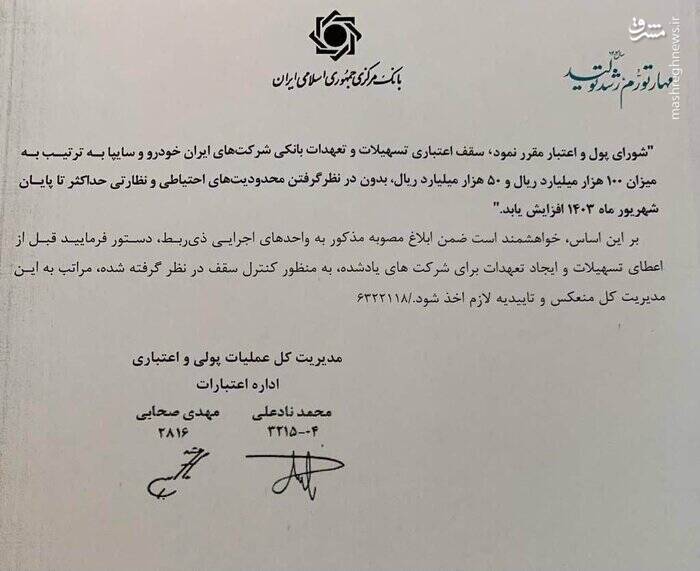 مشرق
mashreghnews.ir
بانک مرکزی جمهوری اسلامی ایران
مهار تورم رشد تولید
"شورای پول و اعتبار مقرر نمود، سقف اعتباری تسهیلات و تعهدات بانکی شرکت‌های ایران خودرو و سایپا به ترتیب به
میزان ۱۰۰ هزار میلیارد ریال و ۵۰ هزار میلیارد ریال، بدون در نظر گرفتن محدودیت‌های احتیاطی و نظارتی حداکثر تا پایان
شهریور ماه ۱۴۰۳ افزایش یابد."
بر این اساس، خواهشمند است ضمن ابلاغ مصوبه مذکور به واحدهای اجرایی ذی‌ربط، دستور فرمایید قبل از
اعطای تسهیلات و ایجاد تعهدات برای شرکت های یادشده، به منظور کنترل سقف در نظر گرفته شده، مراتب به این
مدیریت کل منعکس و تاییدیه لازم اخذ شود./۶۳۲۲۱۱۸
مدیریت کل عملیات پولی و اعتباری
اداره اعتبارات
محمد نادعلی مهدی صحابی
۳۲۱۵-۰۴ ۲۸۱۶